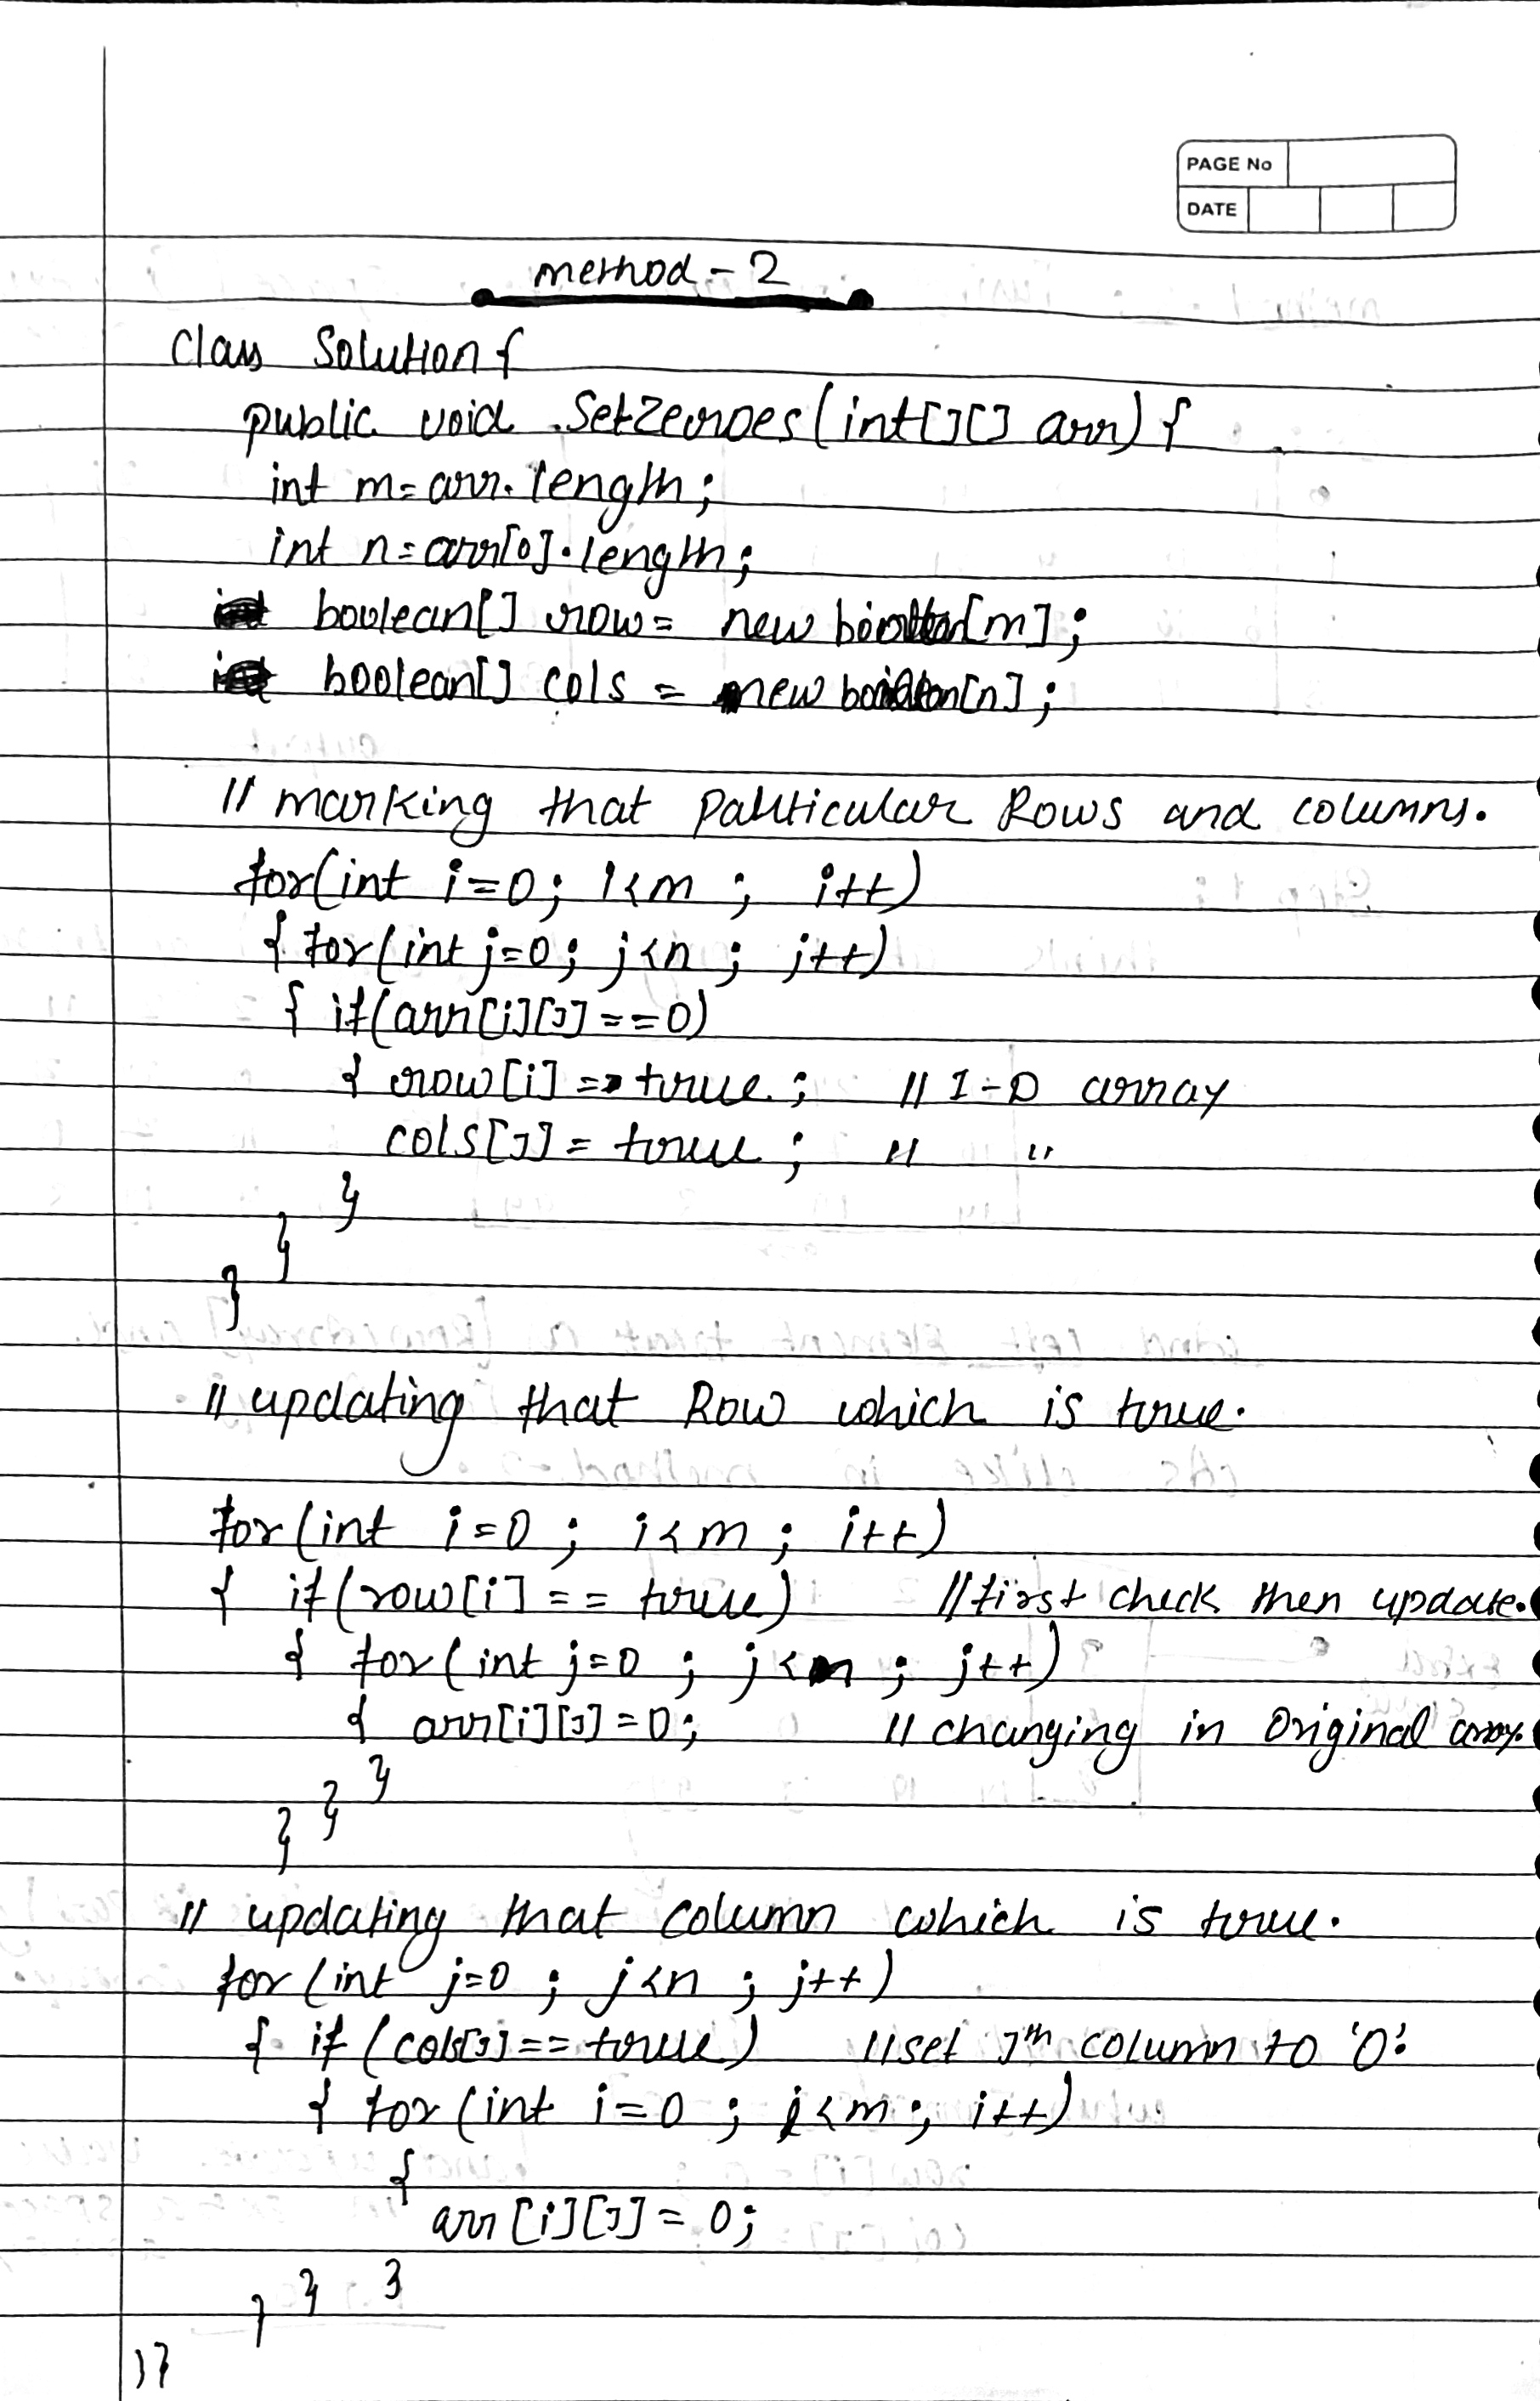 PAGE No
DATE
method - 2
Class Solution {
public void SetZeroes (int[][] arr) {
int m = arr.length;
int n = arr[0].length;
boolean[] row = new boolean[m];
boolean[] cols = new boolean[n];
// marking that particular Rows and columns.
for(int i=0; i<m ; i++)
{ for(int j=0; j<n ; j++)
{ if(arr[i][j]==0)
{ row[i] = true ; // 1-D array
cols[j] = true ; // "
}
}
}
// updating that Row which is true.
for(int i=0 ; i<m ; i++)
{ if(row[i] == true) // first check then update.
{ for(int j=0 ; j<n ; j++)
{ arr[i][j]=0; // changing in Original array.
}
}
}
// updating that column which is true.
for (int j=0 ; j<n ; j++)
{ if (cols[j]== true) // set Jth column to '0'.
{ for (int i=0 ; i<m ; i++)
{
arr[i][j] = 0;
} } }
}}